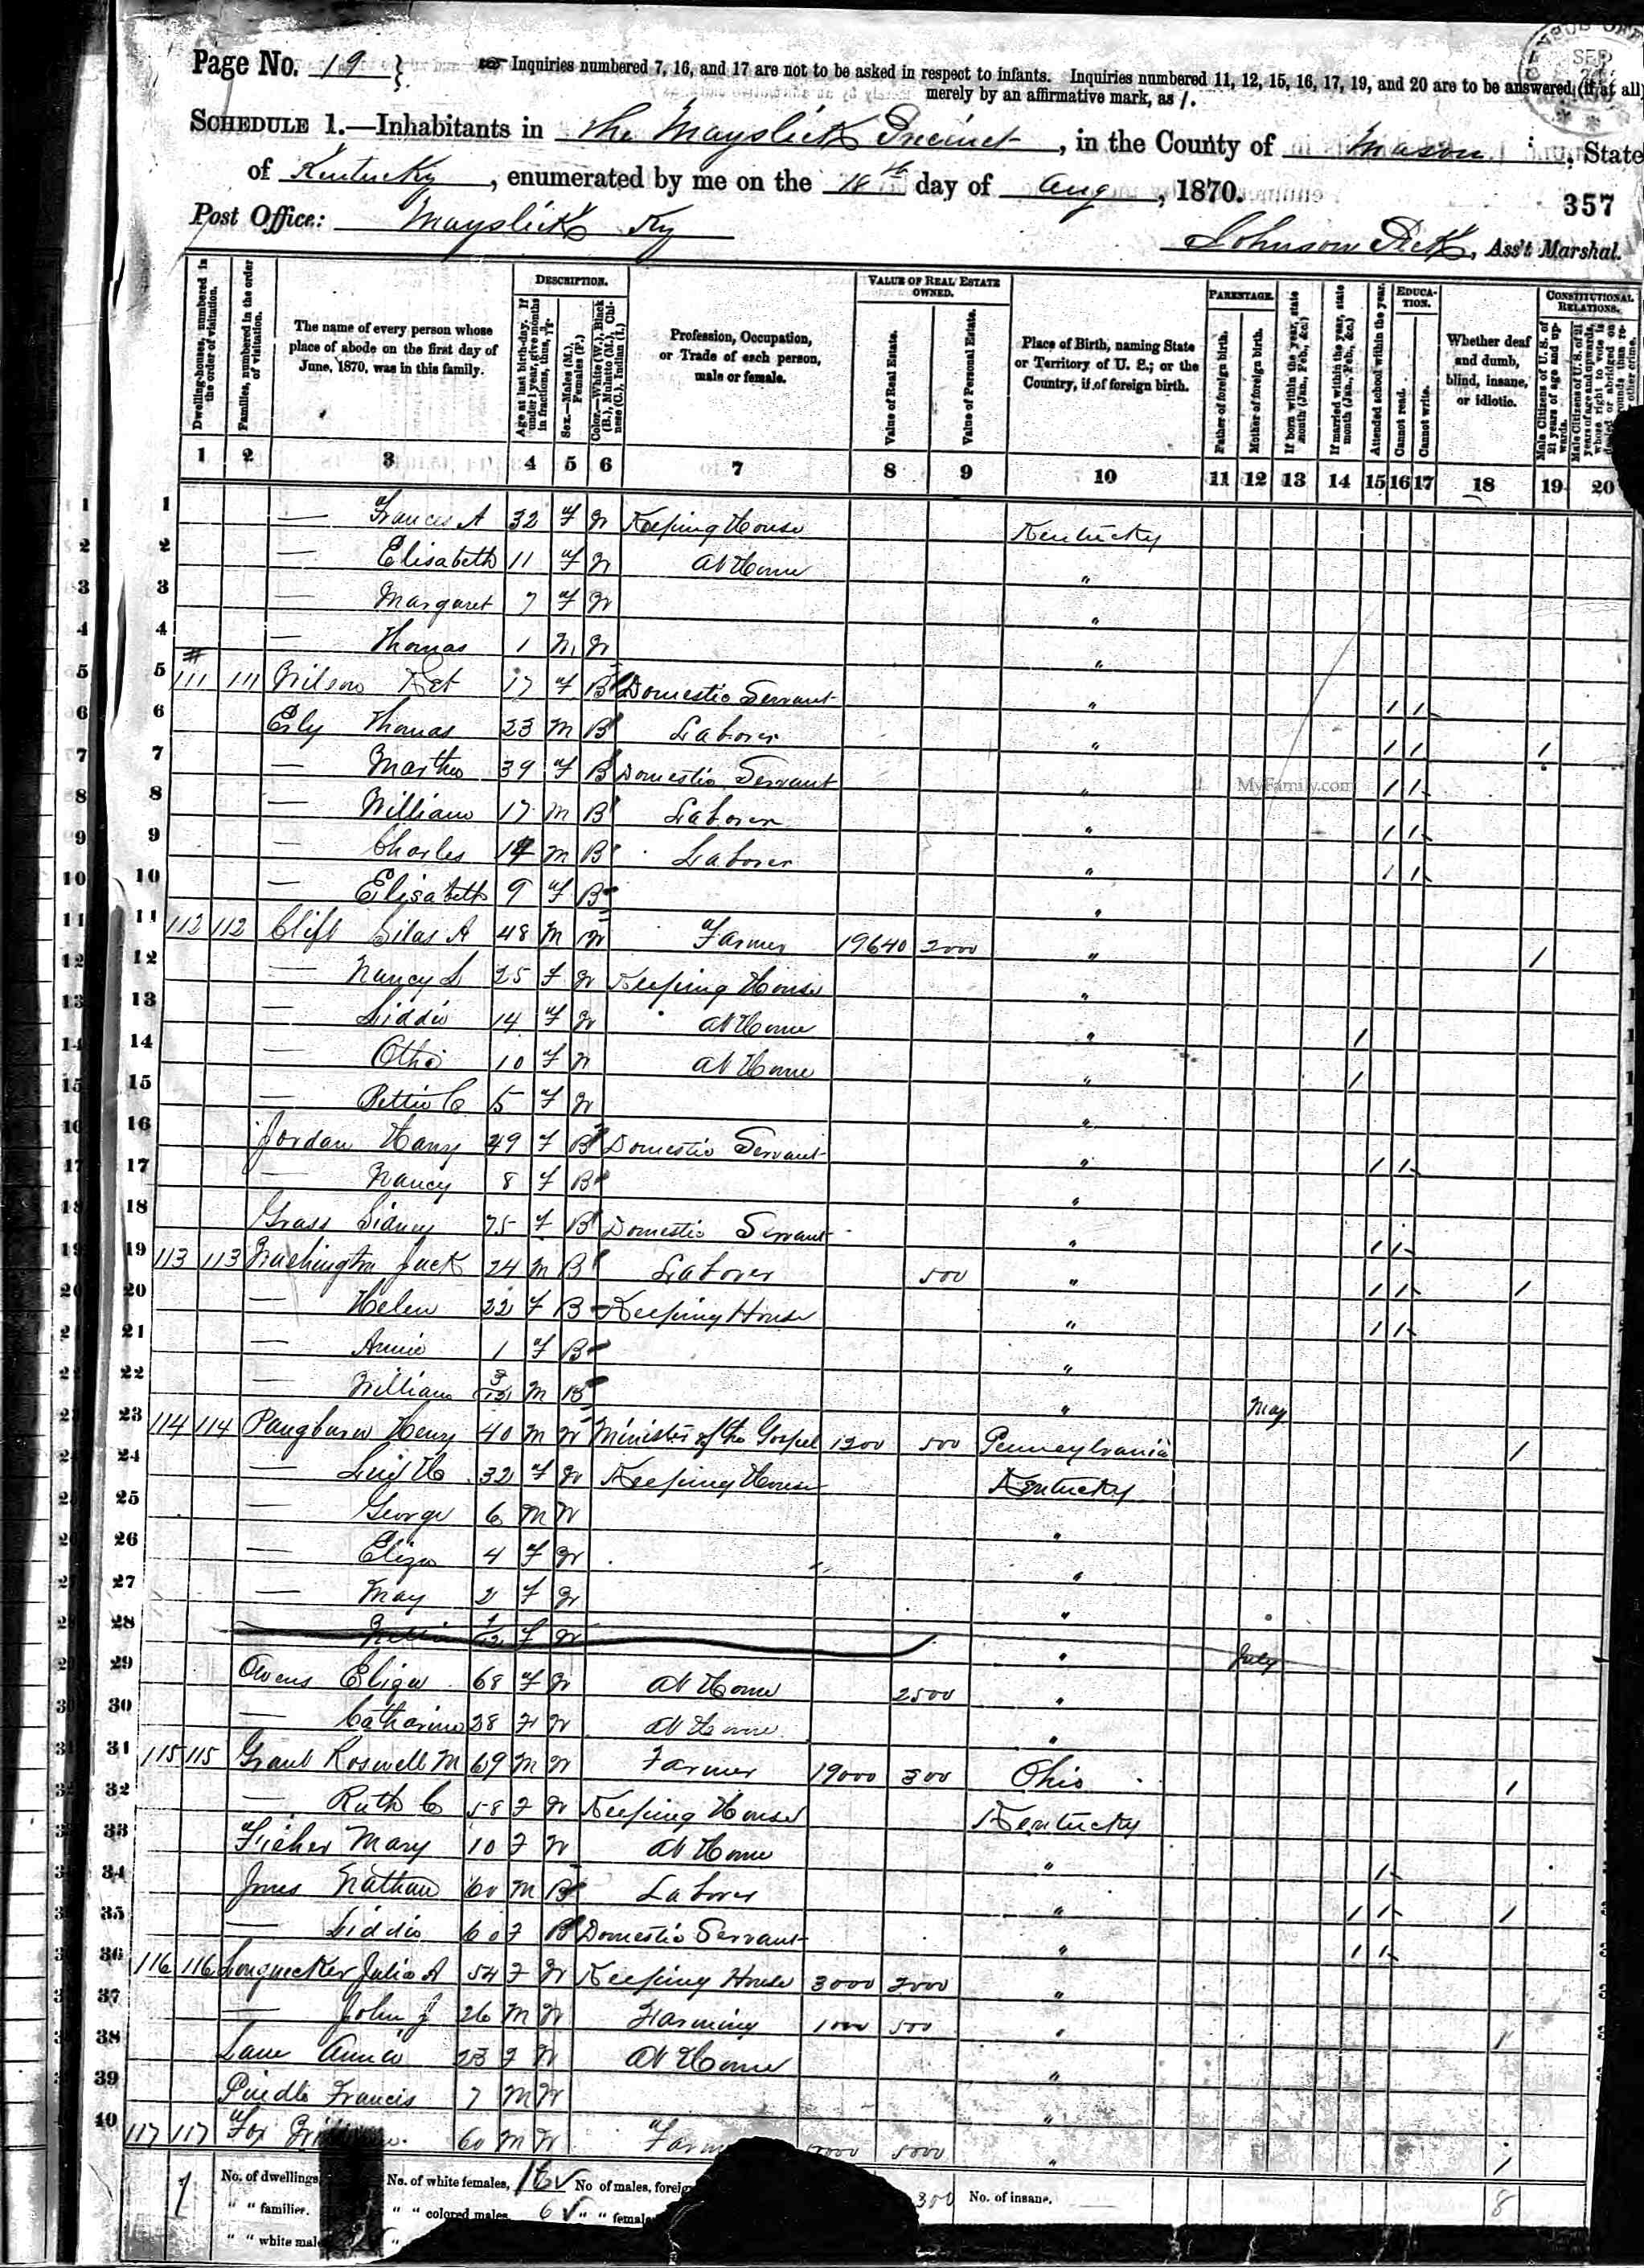 Page No. 19 } Inquiries numbered 7, 16, and 17 are not to be asked in respect to infants. Inquiries numbered 11, 12, 15, 16, 17, 19, and 20 are to be answered (if at all)
merely by an affirmative mark, as /.
SCHEDULE 1.—Inhabitants in The Mayslick Precinct, in the County of Mason, State
of Kentucky, enumerated by me on the day of Aug, 1870.
357
Post Office: Mayslick Ky
Johnson, Ass't Marshal.
Dwelling-houses, numbered in the order of visitation.
Families, numbered in the order of visitation.
The name of every person whose place of abode on the first day of June, 1870, was in this family.
DESCRIPTION.
Age at last birth-day. If under 1 year, give months in fractions, thus,
Sex.—Males (M.), Females (F.)
Color.—White (W.), Black (B.), Mulatto (M.), Chinese (C.), Indian (I.)
Profession, Occupation, or Trade of each person, male or female.
VALUE OF REAL ESTATE OWNED.
Value of Real Estate.
Value of Personal Estate.
Place of Birth, naming State or Territory of U. S.; or the Country, if of foreign birth.
PARENTAGE.
Father of foreign birth.
Mother of foreign birth.
If born within the year, state month (Jan., Feb., &c.)
If married within the year, state month (Jan., Feb., &c.)
Attended school within the year.
EDUCATION.
Cannot read.
Cannot write.
Whether deaf and dumb, blind, insane, or idiotic.
CONSTITUTIONAL RELATIONS.
Male Citizens of U. S. of 21 years of age and upwards.
1 2 3 4 5 6 7 8 9 10 11 12 13 14 15 16 17 18 19 20
1 — Frances A 32 F W Keeping House Kentucky
2 — Elisabeth 11 F W At Home "
3 — Margaret 7 F W "
4 — Thomas 1 M W "
5 111 111 Wilson 17 F B Domestic Servant " / /
6 Thomas 23 M B Laborer " / / /
7 — Martha 39 F B Domestic Servant " / /
MyFamily.com
8 — William 17 M B Laborer " / /
9 — Charles 14 M B Laborer " / /
10 — Elisabeth 9 F B "
11 112 112 Clift Silas A 48 M W Farmer 19640 2000 " /
12 — Nancy L 25 F W Keeping House "
13 — Liddie 14 F W At Home " /
14 — 10 F W At Home " /
15 — 5 F W "
16 Jordan 49 F B Domestic Servant " / /
17 — Nancy 8 F B "
18 Grass Sidney 75 F B Domestic Servant " / /
19 113 113 Washington Jack 24 M B Laborer 500 " / / /
20 — Helen 22 F B Keeping House " / /
21 — Annie 1 F B "
22 — William 3/12 M B " May
23 114 114 Pangburn Henry 40 M W Minister of the Gospel 1200 500 Pennsylvania /
24 — 32 F W Keeping House Kentucky
25 — George 6 M W "
26 — Eliza 4 F W "
27 — May 2 F W "
28 1/12 F W " July
29 Owens Eliza 68 F W At Home 2500 "
30 — Catharine 28 F W At Home "
31 115 115 Grant Roswell M 69 M W Farmer 19000 300 Ohio /
32 — Ruth C 58 F W Keeping House Kentucky
33 Mary 10 F W At Home " /
34 Jones Nathan 60 M B Laborer " / / /
35 — Liddie 60 F B Domestic Servant " / /
36 116 116 Longnecker Julia A 54 F W Keeping House 3000 2000 "
37 — John J 26 M W Farming 1000 500 " /
38 Lane 23 F W At Home "
39 Francis 7 M W "
40 117 117 Fox 60 M W 5000 " /
No. of dwellings, No. of white females, 16 No of males, foreign 300 No. of insane, 8
" " families. " " colored males, 6 " " females
" " white males